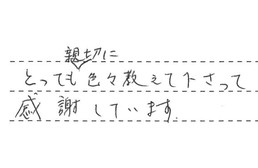 親切に
とっても色々教えて下さって
感謝しています。